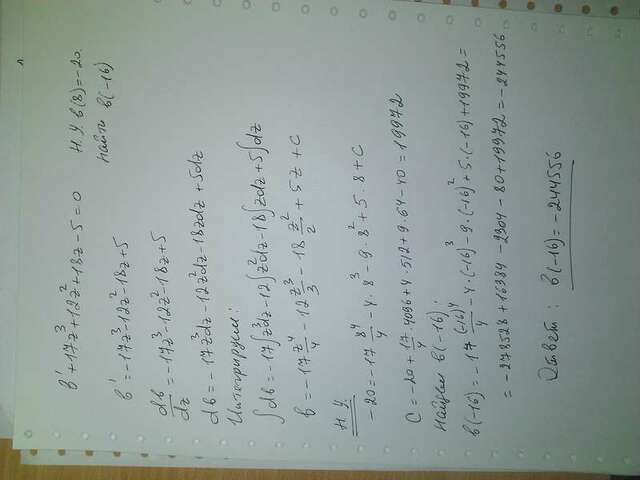 в' + 17z³ + 12z² + 18z - 5 = 0 Н.У. в(8) = -20.
найти в(-16)
в' = -17z³ - 12z² - 18z + 5
dв/dz = -17z³ - 12z² - 18z + 5
dв = -17z³dz - 12z²dz - 18zdz + 5dz
Интегрируем:
∫dв = -17∫z³dz - 12∫z²dz - 18∫zdz + 5∫dz
в = -17 z⁴/4 - 12 z³/3 - 18 z²/2 + 5z + C
Н.У.
-20 = -17 8⁴/4 - 4·8³ - 9·8² + 5·8 + C
C = -20 + 17/4·4096 + 4·512 + 9·64 - 40 = 19972
Найдем в(-16):
в(-16) = -17 (-16)⁴/4 - 4·(-16)³ - 9·(-16)² + 5·(-16) + 19972 =
= -278528 + 16384 - 2304 - 80 + 19972 = -244556
Ответ: в(-16) = -244556